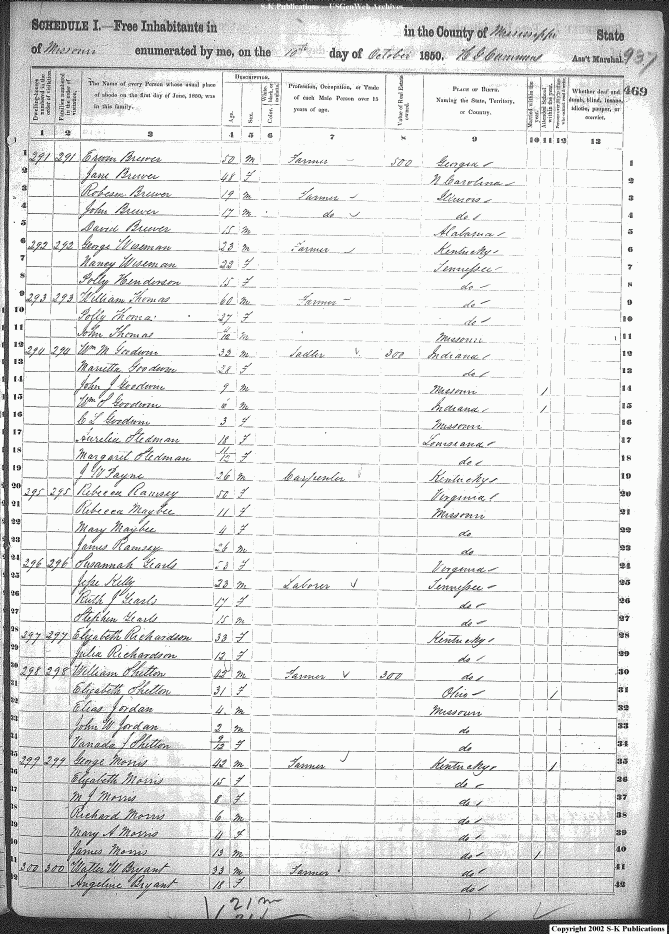 S-K Publications - USGenWeb Archives
SCHEDULE I.—Free Inhabitants in in the County of Mississippi State
of Missouri enumerated by me, on the 10th day of October 1850. Ass't Marshal. 937
469
Dwelling-houses numbered in the order of visitation. Families numbered in the order of visitation. The Name of every Person whose usual place of abode on the first day of June, 1850, was in this family. DESCRIPTION. Age. Sex. Color Profession, Occupation, or Trade of each Male Person over 15 years of age. Value of Real Estate owned. PLACE OF BIRTH. Naming the State, Territory, or Country. Married within the year. Attended School within the year. Whether deaf and dumb, blind, insane, idiotic, pauper, or convict.
1 2 3 4 5 6 7 8 9 10 11 12 13
1 291 291 Brewer 50 m Farmer 500 Georgia 1
2 Jane Brewer 48 F N Carolina 2
3 Brewer 19 m Farmer Illinois 3
4 John Brewer 17 m do do 4
5 David Brewer 15 m Alabama 5
6 292 292 George Wiseman 23 m Farmer Kentucky 6
7 Nancy Wiseman 22 F Tennessee 7
8 Polly Henderson 15 F do 8
9 293 293 William Thomas 60 m Farmer do 9
10 Polly Thomas 37 F do 10
11 John Thomas /12 m Missouri 11
12 294 294 Wm M Goodwin 33 m Sadler 300 Indiana 12
13 Marietta Goodwin 28 F do 13
14 John J Goodwin 9 m Missouri 1 14
15 Wm Goodwin 6 m Indiana 1 15
16 Goodwin 3 F Missouri 16
17 Aurelia Stedman 18 F Louisiana 17
18 Margaret Stedman 11/12 F do 18
19 J W Payne 26 m Carpenter Kentucky 19
20 295 295 Rebecca Ramsey 50 F Virginia 20
21 Rebecca Maybee 11 F Missouri 21
22 Mary Maybee 4 F do 22
23 James Ramsey 26 m do 23
24 296 296 Susannah Gearls F Virginia 24
25 Jesse Kelly 23 m Laborer Tennessee 25
26 Ruth J Gearls 17 F do 26
27 Stephen Gearls 15 m do 27
28 297 297 Elizabeth Richardson 33 F Kentucky 28
29 Julia Richardson 12 F do 29
30 298 298 William Shelton 42 m Farmer 300 do 30
31 Elizabeth Shelton 31 F Ohio 1 31
32 Elias Jordan 4 m Missouri 32
33 John W Jordan 2 m do 33
34 Vanada J Shelton 9/12 F do 34
35 299 299 George Morris 42 m Farmer Kentucky 1 35
36 Elizabeth Morris 15 F do 36
37 M J Morris 8 F do 37
38 Richard Morris 6 m do 38
39 Mary A Morris 4 F do 39
40 James Morris 13 m do 1 40
41 300 300 Walter W Bryant 33 m Farmer do 41
42 Angeline Bryant 18 F do 42
21 m
21 F
Copyright 2002 S-K Publications